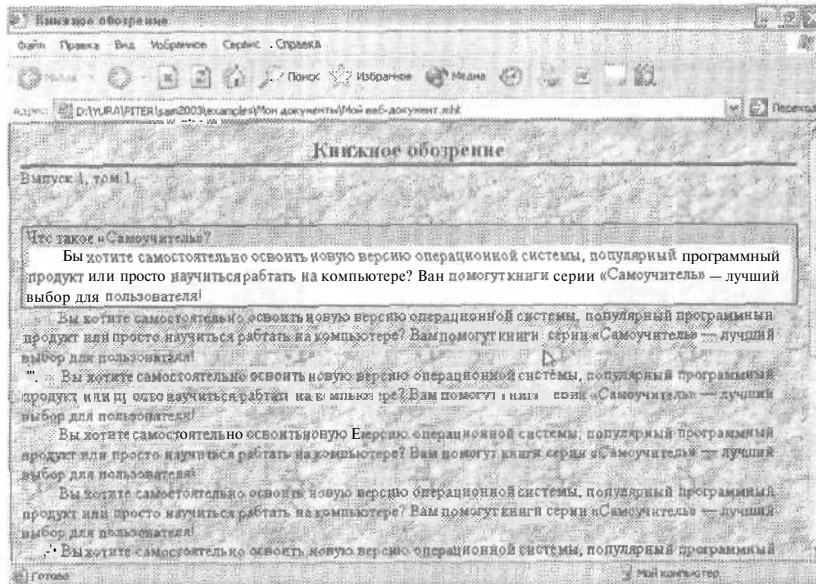 Книжное обозрение
Файл Правка Вид Избранное Сервис Справка
Назад Поиск Избранное Медиа
Адрес: D:\YURA\PITER\sam2003\examples\Мои документы\Мой веб-документ.mht Переход
Книжное обозрение
Выпуск 1, том 1.
Что такое «Самоучитель»?
Бы хотите самостоятельно освоить новую версию операционной системы, популярный программный
продукт или просто научиться рабтать на компьютере? Ван помогут книги серии «Самоучитель» — лучший
выбор для пользователя!
Вы хотите самостоятельно освоить новую версию операционной системы, популярный программный
продукт или просто научиться рабтать на компьютере? Вам помогут книги серии «Самоучитель» — лучший
выбор для пользователя!
Вы хотите самостоятельно освоить новую версию операционной системы, популярный программный
продукт или научиться рабтать на Вам помогут серии «Самоучитель» — лучший
выбор для пользователя!
Вы хотите самостоятельно освоить новую Еиерсию операционной системы, популярный программный
продукт или просто научиться рабтать на компьютере? Вам помогут книги серии «Самоучитель» — лучший
выбор для пользователя!
Вы хотите самостоятельно освоить новую версию операционной системы, популярный программный
продукт или просто научиться рабтать на компьютере? Вам помогут книги серии «Самоучитель» — лучший
выбор для пользователя!
Вы хотите самостоятельно освоить новую версию операционной системы, популярный программный
Готово Мой компьютер